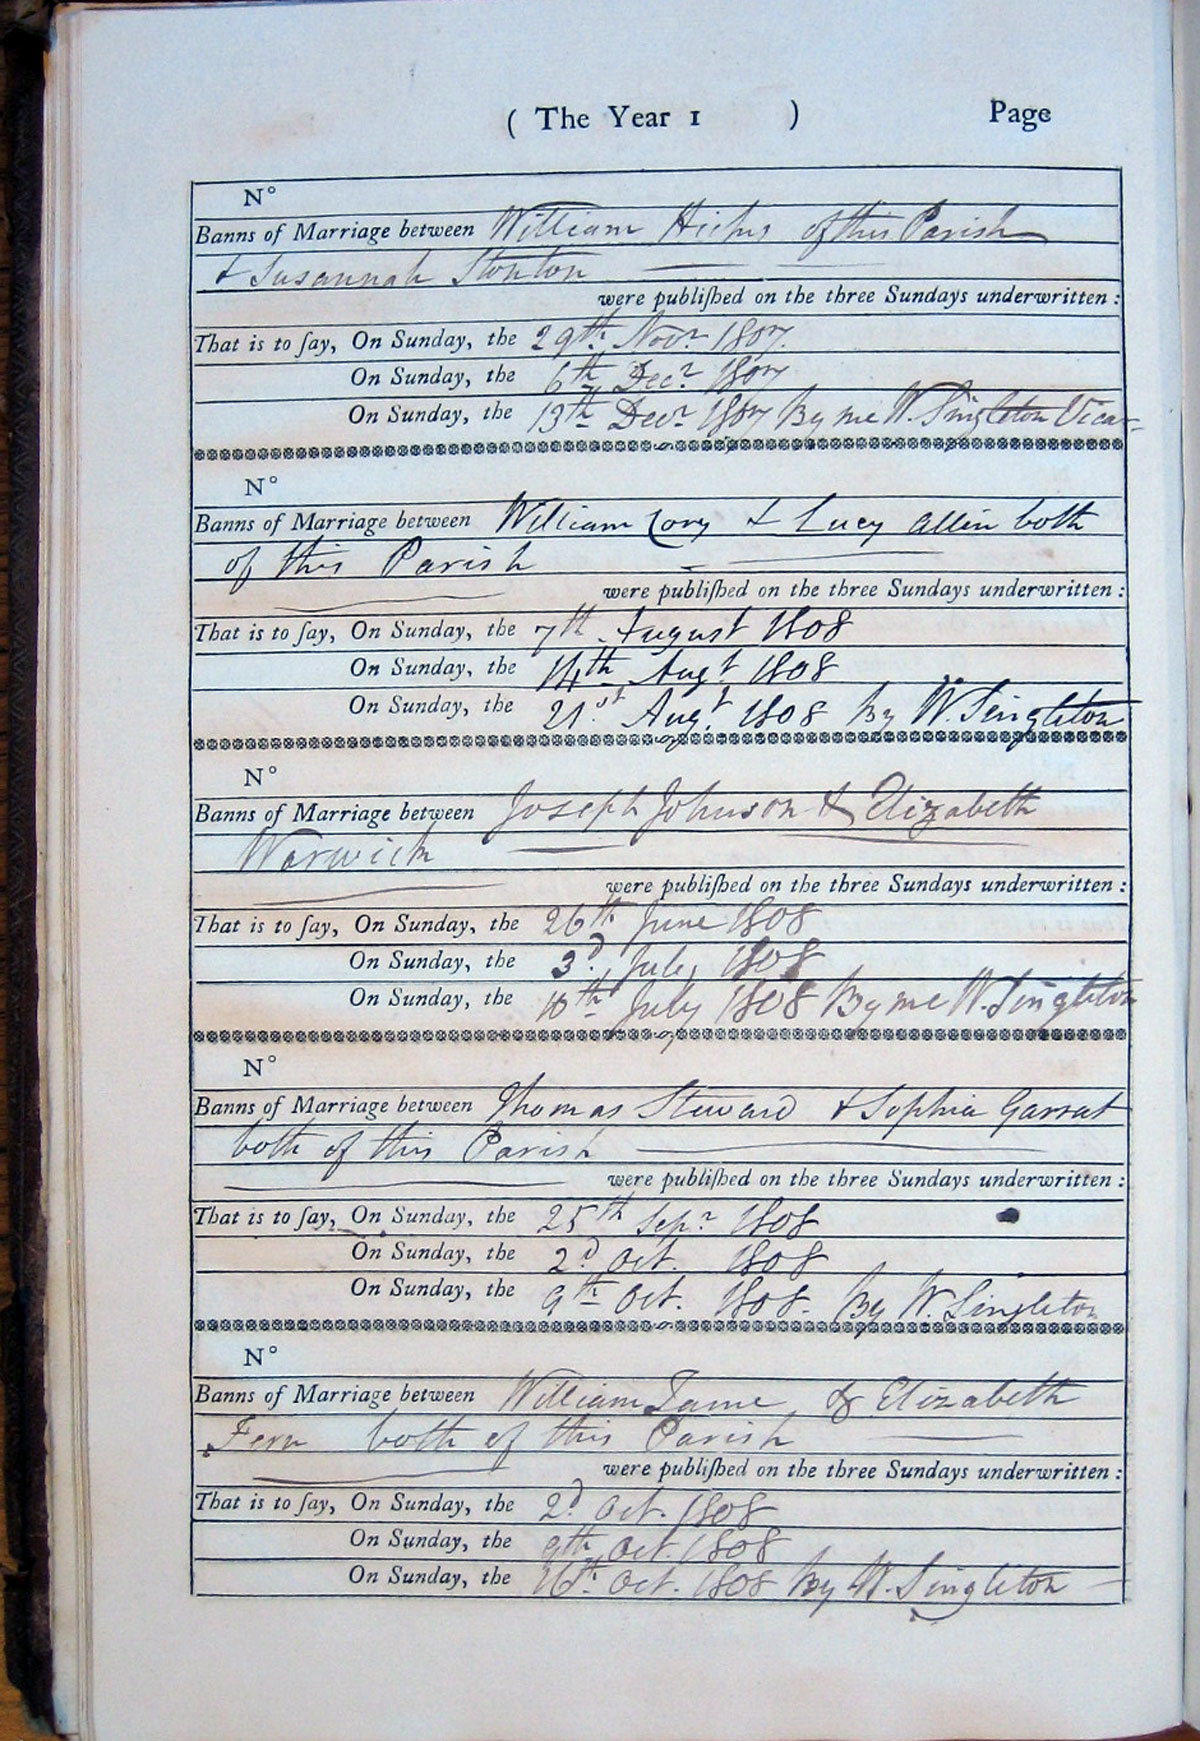 ( The Year 1 ) Page
N°
Banns of Marriage between William of this Parish
& Susannah Stonton
were publiſhed on the three Sundays underwritten :
That is to ſay, On Sunday, the 29th. Novr. 1807.
On Sunday, the 6th Decr. 1807
On Sunday, the 13th Decr. 1807 By me W. Singleton Vicar
N°
Banns of Marriage between William Cory & Lucy Allin both
of this Parish
were publiſhed on the three Sundays underwritten :
That is to ſay, On Sunday, the 7th. August 1808
On Sunday, the 14th Augt. 1808
On Sunday, the 21.st Augt. 1808 By W. Singleton
N°
Banns of Marriage between Joseph Johnson & Elizabeth
Warwick
were publiſhed on the three Sundays underwritten :
That is to ſay, On Sunday, the 26th. June 1808
On Sunday, the 3d. July 1808
On Sunday, the 10th July 1808 By me W. Singleton
N°
Banns of Marriage between Thomas Steward & Sophia Garrat
both of this Parish
were publiſhed on the three Sundays underwritten :
That is to ſay, On Sunday, the 25th Sepr. 1808
On Sunday, the 2d. Oct. 1808
On Sunday, the 9th Oct. 1808. By W. Singleton
N°
Banns of Marriage between William Tame & Elizabeth
Fern both of this Parish
were publiſhed on the three Sundays underwritten :
That is to ſay, On Sunday, the 2d. Oct. 1808
On Sunday, the 9th Oct. 1808
On Sunday, the 16th. Oct. 1808 By W. Singleton